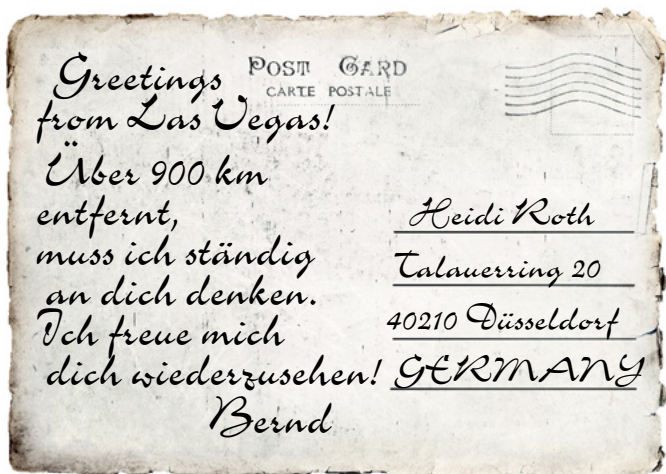 POST CARD
CARTE POSTALE
Greetings
from Las Vegas!
Über 900 km
entfernt,
muss ich ständig
an dich denken.
Ich freue mich
dich wiederzusehen!
Bernd
Heidi Roth
Talauerring 20
40210 Düsseldorf
GERMANY